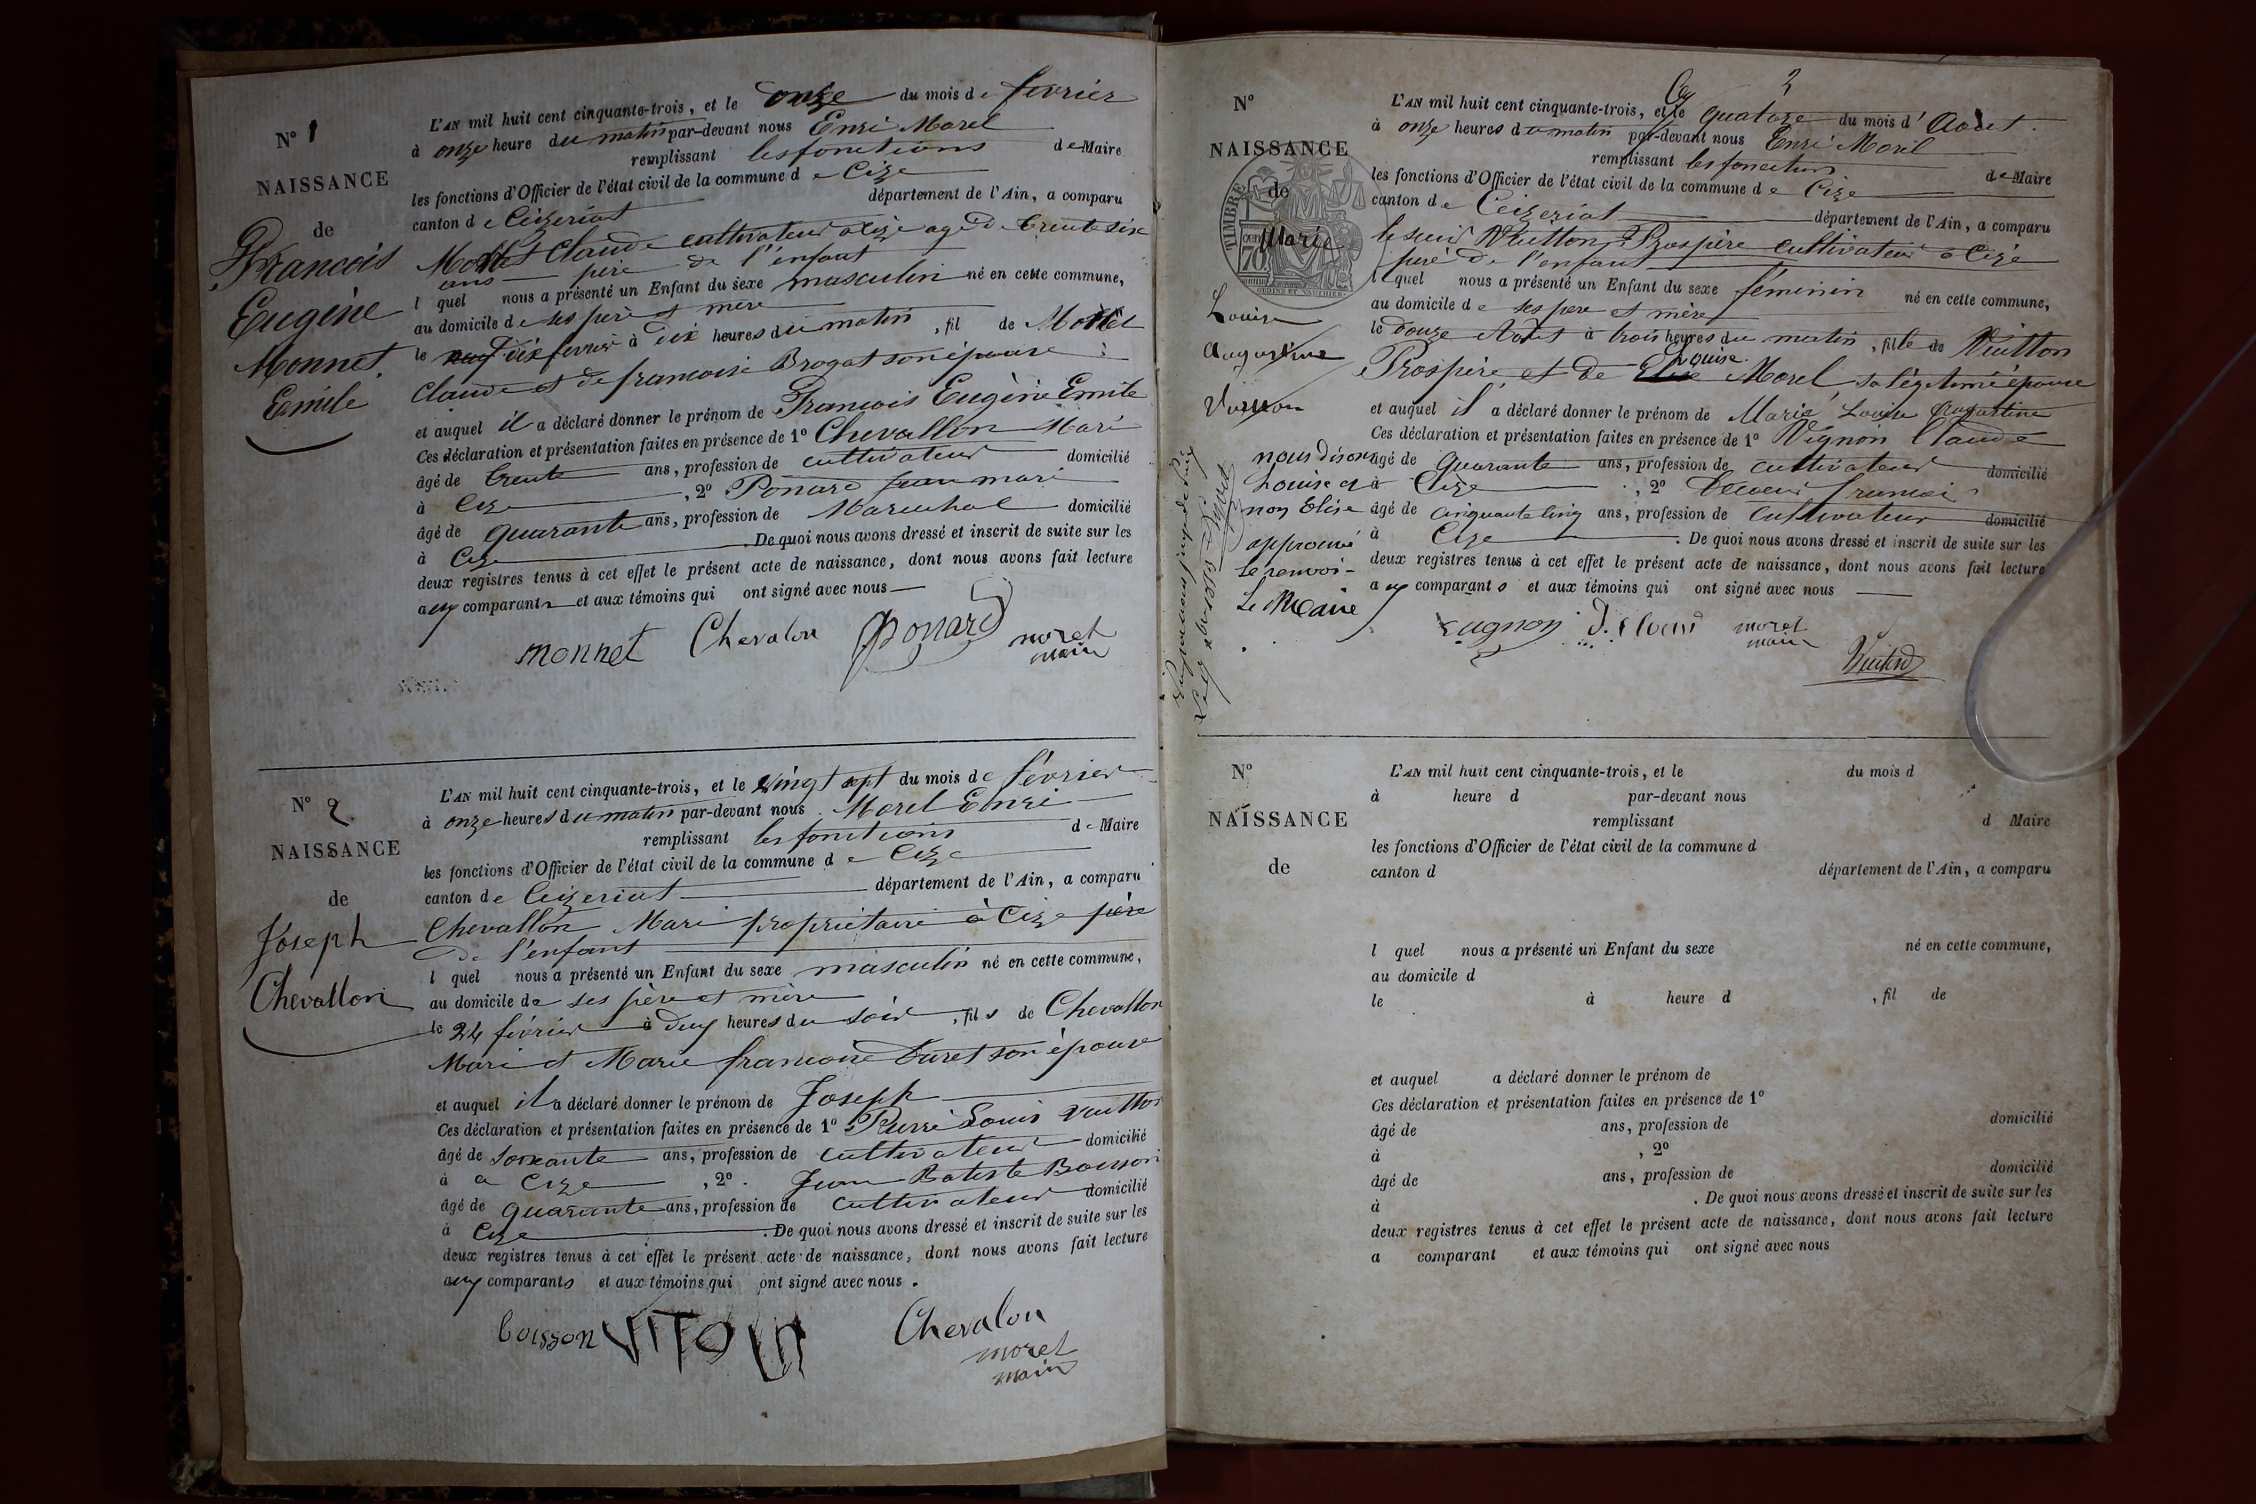 N° 1
NAISSANCE
de
François
Eugène
Monnet
Emile
L'AN mil huit cent cinquante-trois, et le onze du mois de fevrier
à onze heure du matin par-devant nous Enri Morel
remplissant les fonctions de Maire
les fonctions d'Officier de l'état civil de la commune de Cize
canton de Ceizeriat département de l'Ain, a comparu
Claude cultivateur a Cize agé de trente six
ans père de l'enfant
l quel nous a présenté un Enfant du sexe masculin né en cette commune,
au domicile de ses père et mère
le dix fevrier à dix heures du matin, fil de
Claude et de francoise Brogat son épouse
et auquel il a déclaré donner le prénom de François Eugène Emile
Ces déclaration et présentation faites en présence de 1° Chevallon Mari
âgé de trente ans, profession de cultivateur domicilié
à Cize, 2° Ponard Jean mari
âgé de quarante ans, profession de Marechal domicilié
à Cize. De quoi nous avons dressé et inscrit de suite sur les
deux registres tenus à cet effet le présent acte de naissance, dont nous avons fait lecture
aux comparants et aux témoins qui ont signé avec nous
monnet Chevalon Ponard morel
maire
N° 2
NAISSANCE
de
Joseph
Chevallon
L'AN mil huit cent cinquante-trois, et le vingt sept du mois de février
à onze heures du matin par-devant nous Morel Enri
remplissant les fonctions de Maire
les fonctions d'Officier de l'état civil de la commune de Cize
canton de Ceizeriat département de l'Ain, a comparu
Chevallon Mari propriétaire à Cize père
de l'enfant
l quel nous a présenté un Enfant du sexe masculin né en cette commune,
au domicile de ses père et mère
le 24 février à deux heures du soir, fils de Chevallon
Mari et Marie francoise Duret son épouse
et auquel il a déclaré donner le prénom de Joseph
Ces déclaration et présentation faites en présence de 1° Pierre Louis Vuitton
âgé de soixante ans, profession de cultivateur domicilié
à a Cize, 2° Jean Batiste Boisson
âgé de quarante ans, profession de cultivateur domicilié
à Cize. De quoi nous avons dressé et inscrit de suite sur les
deux registres tenus à cet effet le présent acte de naissance, dont nous avons fait lecture
aux comparants et aux témoins qui ont signé avec nous.
boisson Chevalon
morel
maire
N°
NAISSANCE
TIMBRE
de
Marie
Louise
Augustine
nous disons
Louise et
non Elise
approuvé
le renvoi
Le Maire
L'AN mil huit cent cinquante-trois, et le quatorze du mois d'Août
à onze heures du matin par-devant nous Enri Morel
remplissant les fonctions de Maire
les fonctions d'Officier de l'état civil de la commune de Cize
canton de Ceizeriat département de l'Ain, a comparu
le sieur Vuitton Prospère cultivateur à Cize
père de l'enfant
lequel nous a présenté un Enfant du sexe féminin né en cette commune,
au domicile de ses père et mère
le douze Août à trois heures du matin, fille de Vuitton
Louise
Prospère et de Elise Morel sa légitime épouse
et auquel il a déclaré donner le prénom de Marie Louise Augustine
Ces déclaration et présentation faites en présence de 1° Vignon Claude
âgé de quarante ans, profession de cultivateur domicilié
à Cize, 2°
âgé de cinquante cinq ans, profession de cultivateur domicilié
à Cize. De quoi nous avons dressé et inscrit de suite sur les
deux registres tenus à cet effet le présent acte de naissance, dont nous avons fait lecture
aux comparants et aux témoins qui ont signé avec nous
morel
maire
N°
NAISSANCE
de
L'AN mil huit cent cinquante-trois, et le du mois d
à heure d par-devant nous
remplissant d Maire
les fonctions d'Officier de l'état civil de la commune d
canton d département de l'Ain, a comparu
l quel nous a présenté un Enfant du sexe né en cette commune,
au domicile d
le à heure d, fil de
et auquel a déclaré donner le prénom de
Ces déclaration et présentation faites en présence de 1°
âgé de ans, profession de domicilié
à, 2°
âgé de ans, profession de domicilié
à. De quoi nous avons dressé et inscrit de suite sur les
deux registres tenus à cet effet le présent acte de naissance, dont nous avons fait lecture
a comparant et aux témoins qui ont signé avec nous